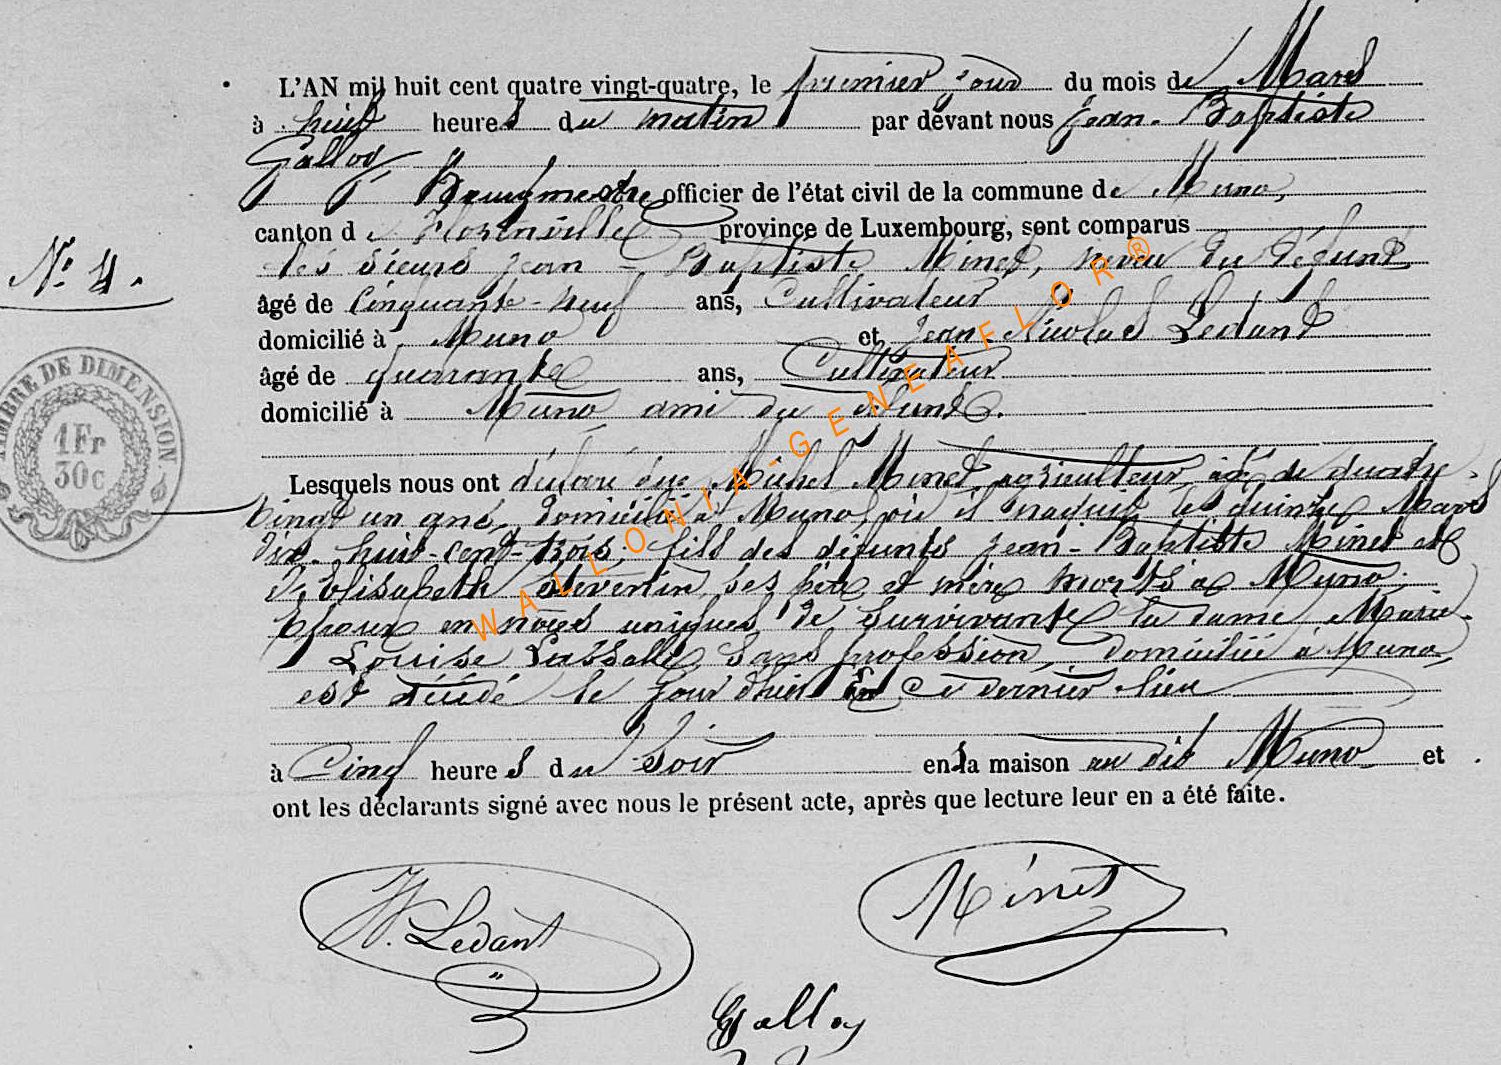 L'AN mil huit cent quatre vingt-quatre, le premier jour du mois de Mars
à huit heures du matin par devant nous Jean-Baptiste
Galloy
Bourgmestre officier de l'état civil de la commune de Muno,
canton de Florenville province de Luxembourg, sont comparus
les sieurs Jean-Baptiste Minet, neveu du défunt
âgé de Cinquante-neuf ans, Cultivateur
domicilié à Muno et Jean Nicolas Ledant
âgé de quarante ans, Cultivateur
domicilié à Muno, ami du défunt.
N° 4.
TIMBRE DE DIMENSION.
1Fr
30c
Lesquels nous ont déclaré que Michel Minet, agriculteur, âgé de quatre-
vingt un ans, domicilié à Muno, où il naquit le quinze Mars
dix-huit-cent-trois; fils des défunts Jean-Baptiste Minet et
d'Elisabeth ses père et mère morts à Muno;
Epoux en noces uniques de survivante la dame Marie-
Louise Lassalle, sans profession, domiciliée à Muno,
est décédé le jour d'hier en ce dernier lieu
à Cinq heures du soir en la maison au dit Muno et
ont les déclarants signé avec nous le présent acte, après que lecture leur en a été faite.
N. Ledant
Minet
Galloy
WALLONIA-GENEAFLOR®